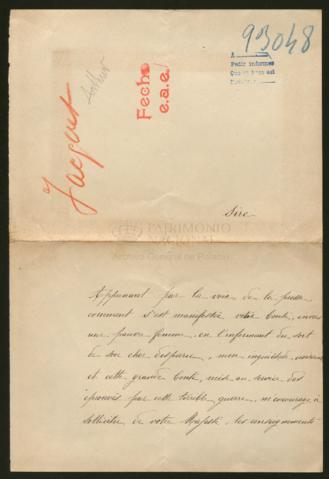 93048
A
Pedir informes
Jacquot
Arthur
Fecho
e.a.e.
Sire
PATRIMONIO
NACIONAL
Archivo General de Palacio
Apprenant par la voix de la presse
comment s'est manifestée votre bonté, envers
une pauvre femme, en l'informant du sort
de son cher disparu, mon inquiétude
et cette grande bonté, mise au service des
éprouvés par cette terrible guerre, m'encourage à
solliciter de votre Majesté, les renseignements